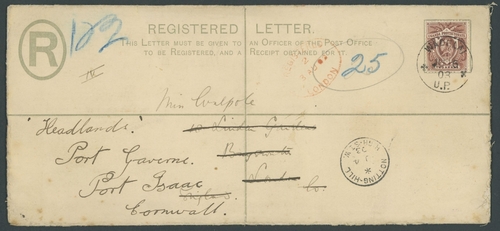 REGISTERED LETTER.
THIS LETTER MUST BE GIVEN TO AN OFFICER OF THE POST OFFICE
TO BE REGISTERED, AND A RECEIPT OBTAINED FOR IT.
R
25
LONDON
03
U.P.
Miss Walpole
"Headlands"
10 Linden Gardens
Port Gaverne
Bayswater
Port Isaac
London
Cornwall.
Co
NOTTING-HILL